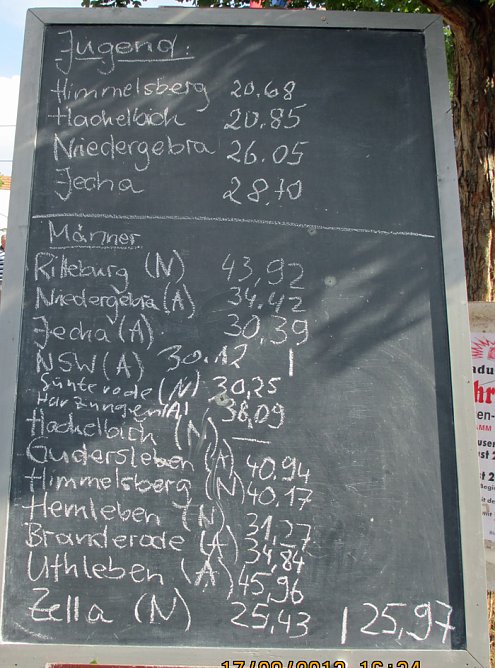 Jugend:
Himmelsberg 20.68
Hachelbich 20.85
Niedergebra 26.05
Jecha 28.70
Männer
Ritteburg (N) 43,92
Niedergebra (A) 34,42
Jecha (A) 30,39
NSW (A) 30.12 |
Sünterode (N) 30,25
Harzungen (A) 38,09
Hachelbich (N) —
Gudersleben (A) 40.94
Himmelsberg (N) 40,17
Hemleben (N) 31,27
Branderode (A) 34,84
Uthleben (A) 45,96
Zella (N) 25,43 | 25,97